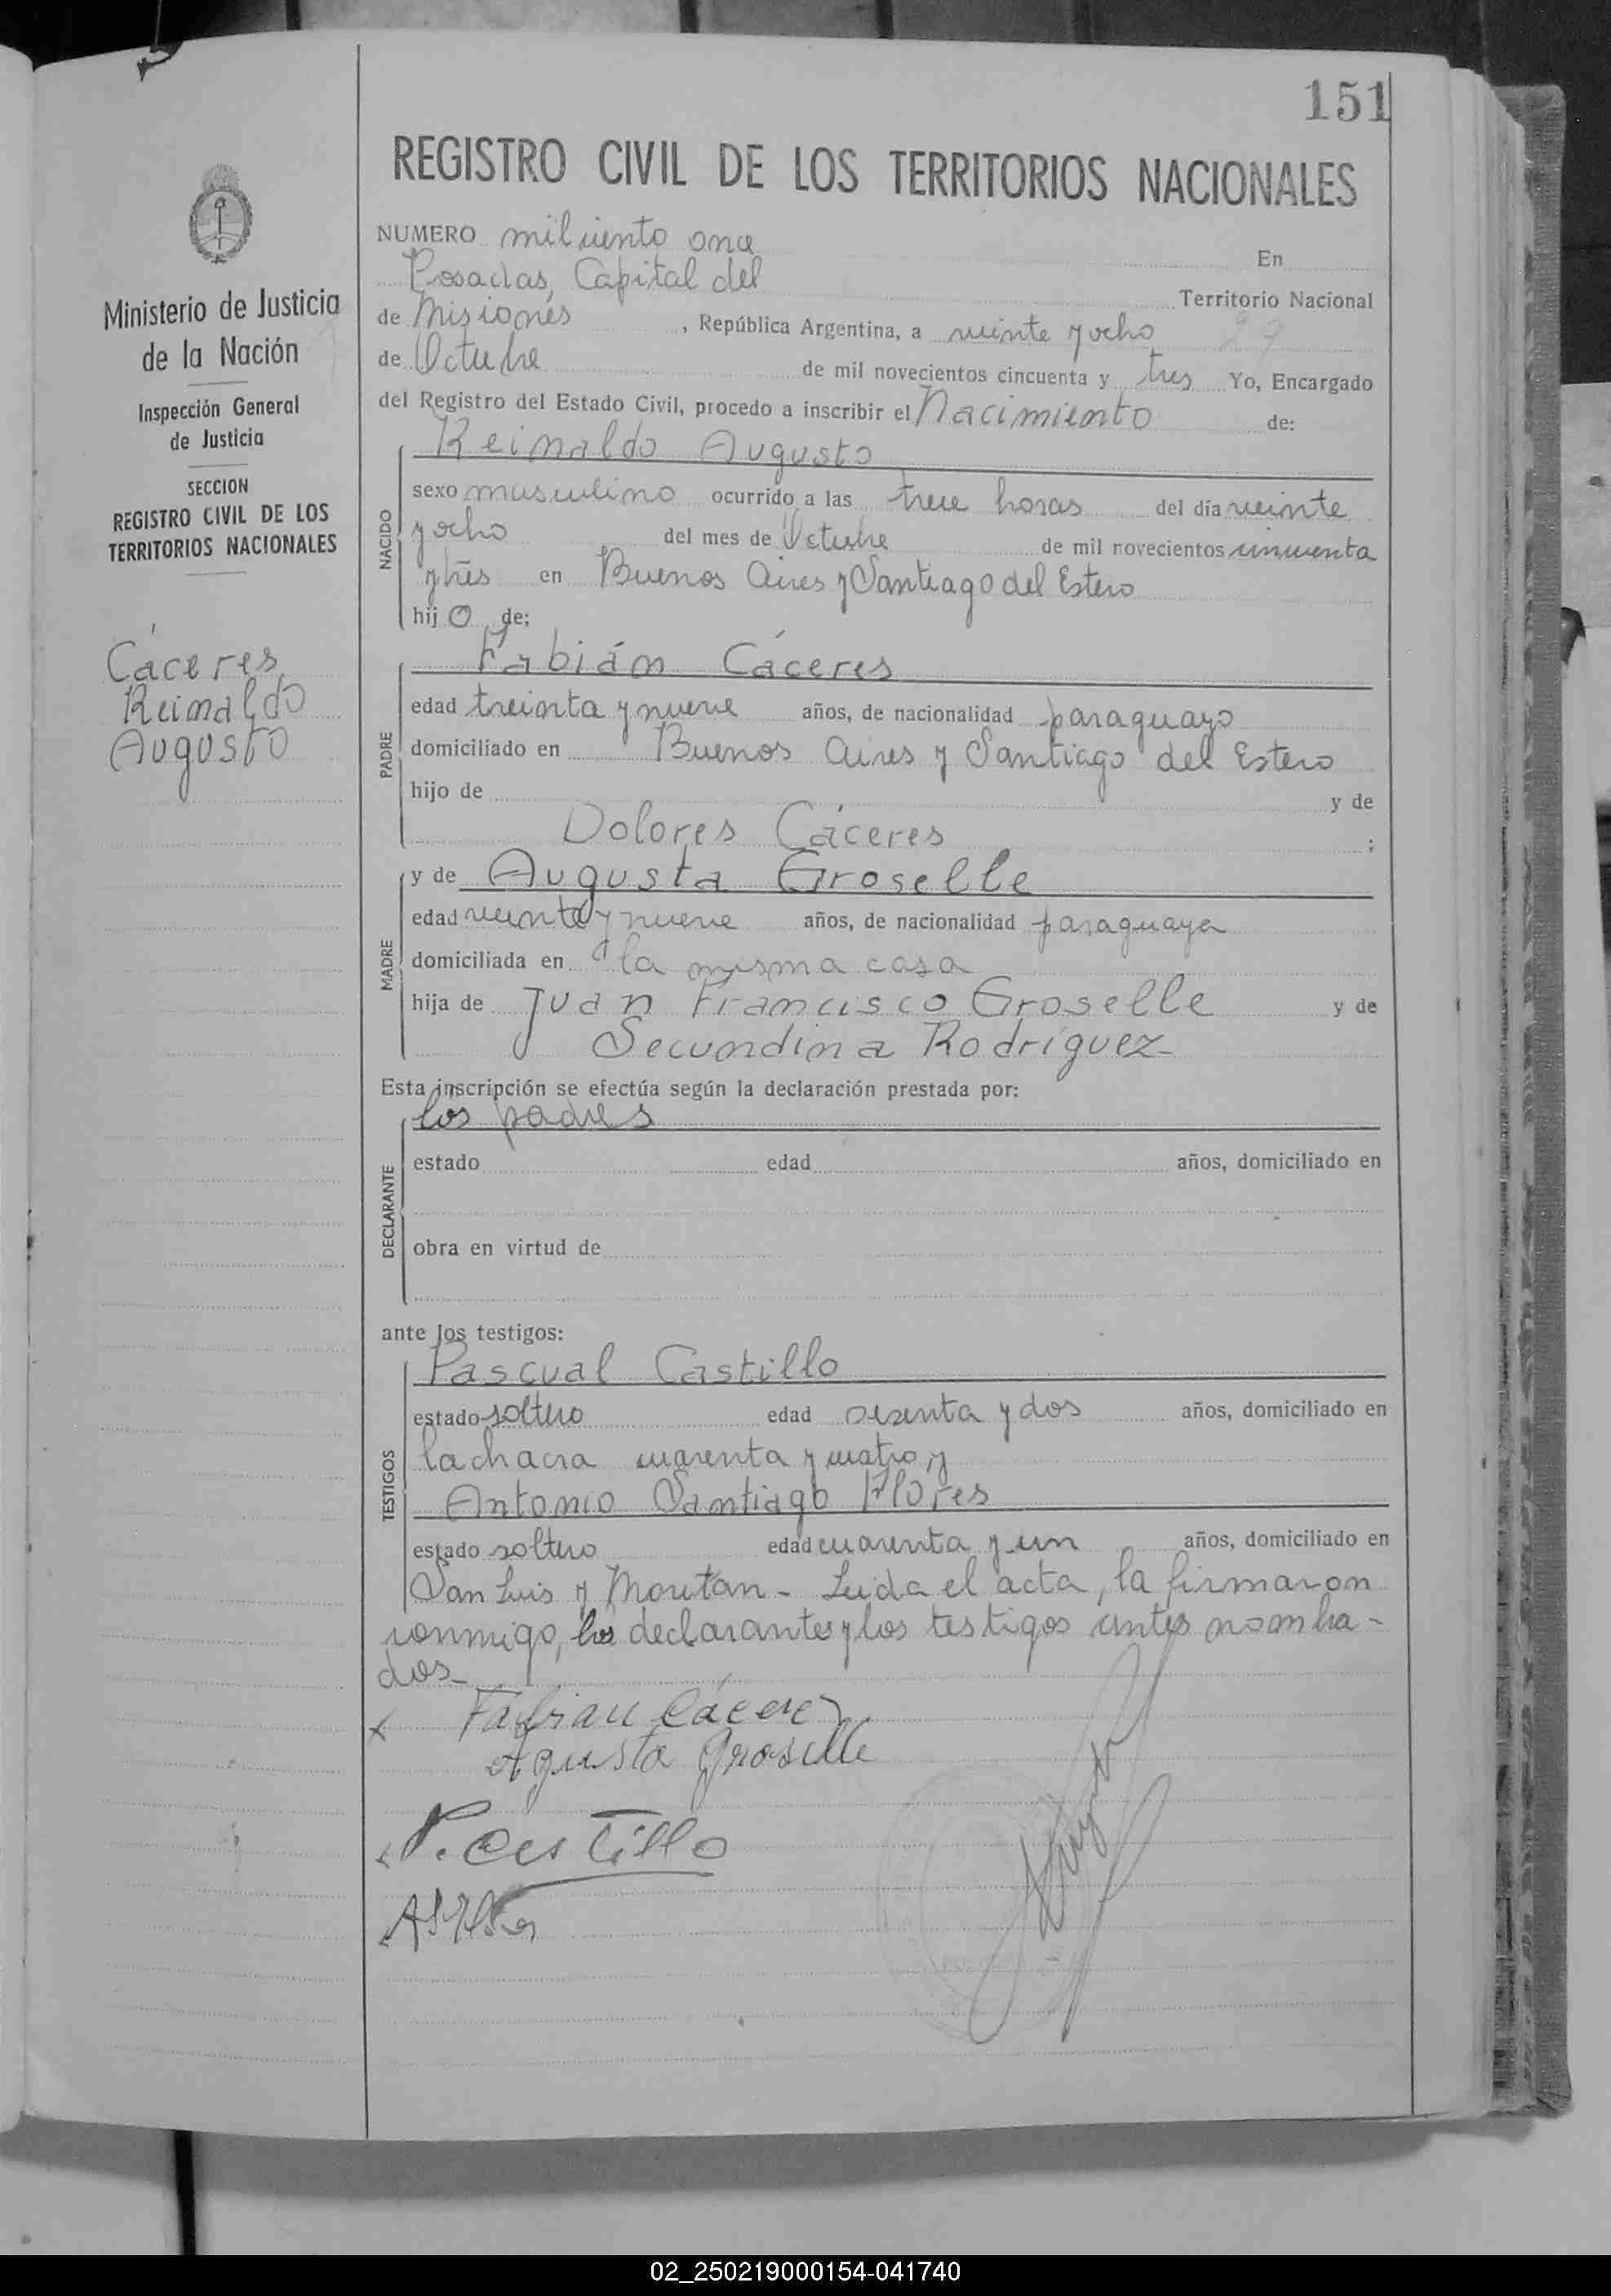 151
REGISTRO CIVIL DE LOS TERRITORIOS NACIONALES
Ministerio de Justicia
de la Nación
Inspección General
de Justicia
SECCION
REGISTRO CIVIL DE LOS
TERRITORIOS NACIONALES
Cáceres,
Reinaldo
Augusto
NUMERO mil ciento once En
Posadas, Capital del Territorio Nacional
de Misiones, República Argentina, a veinte y ocho
de Octubre de mil novecientos cincuenta y tres Yo, Encargado
del Registro del Estado Civil, procedo a inscribir el Nacimiento de:
NACIDO
Reinaldo Augusto
sexo masculino ocurrido a las trece horas del día veinte
y ocho del mes de Octubre de mil novecientos cincuenta
y tres en Buenos Aires y Santiago del Estero
hijo de;
PADRE
Fabián Cáceres
edad treinta y nueve años, de nacionalidad paraguayo
domiciliado en Buenos Aires y Santiago del Estero
hijo de y de
Dolores Cáceres ;
MADRE
y de Augusta Groselle
edad veinte y nueve años, de nacionalidad paraguaya
domiciliada en la misma casa
hija de Juan Francisco Groselle y de
Secundina Rodríguez
Esta inscripción se efectúa según la declaración prestada por:
DECLARANTE
los padres
estado edad años, domiciliado en
obra en virtud de
ante los testigos:
TESTIGOS
Pascual Castillo
estado soltero edad sesenta y dos años, domiciliado en
la chacra cuarenta y cuatro y
Antonio Santiago Flores
estado soltero edad cuarenta y un años, domiciliado en
San Luis y Moritan - Leida el acta, la firmaron
conmigo, los declarantes y los testigos antes nombra-
dos-
Fabian Cácere
Agusta Groselle
P. Castillo
02_250219000154-041740